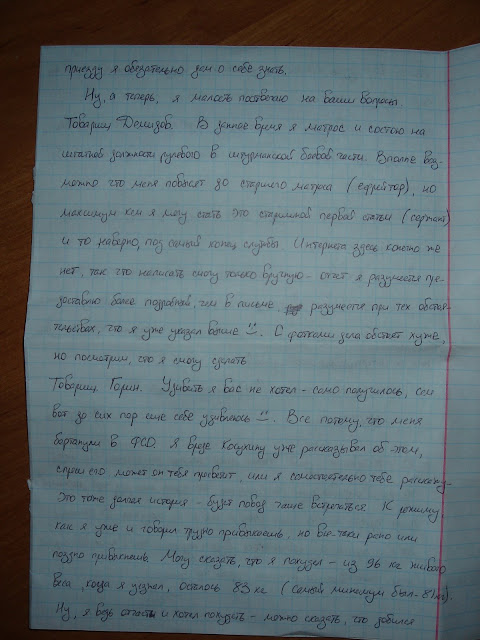 приезду я обезательно дам о себе знать.
Ну, а теперь, я малость поотвечаю на ваши вопросы.
Товарищ Демидов. В данное время я матрос и состою на
штатной должности рулевого в штурманской боевой части. Вполне воз-
можно что меня повысят до старшего матроса (ефрейтор), но
максимум кем я могу стать это старшиной первой статьи (сержант)
и то наверно, под самый конец службы. Интернета здесь конечно же
нет, так что написать смогу только вручную - отчет я разумеется пре-
доставлю более подробный, чем в письме, разумеется при тех обстоя-
тельствах, что я уже указал выше. С фотками дела обстоят хуже,
но посмотрим, что я смогу сделать
Товарищ Горин. Удивить я вас не хотел - само получилось, сам
вот до сих пор еще себе удивляюсь. Все потому, что меня
бортанули в ФСО. Я вроде Косухину уже рассказывал об этом,
спроси его может он тебя просветит, или я самостоятельно тебе расскажу.
Это тоже долгая история - будет повод чаще встречаться. К режиму,
как я уже и говорил трудно привыкаешь, но все-таки рано или
поздно привыкнешь. Могу сказать, что я похудел - из 96 кг живого
веса, когда я уезжал, осталось 83 кг (самый минимум был - 81 кг).
Ну, я ведь отчасти и хотел похудеть - можно сказать, что добился